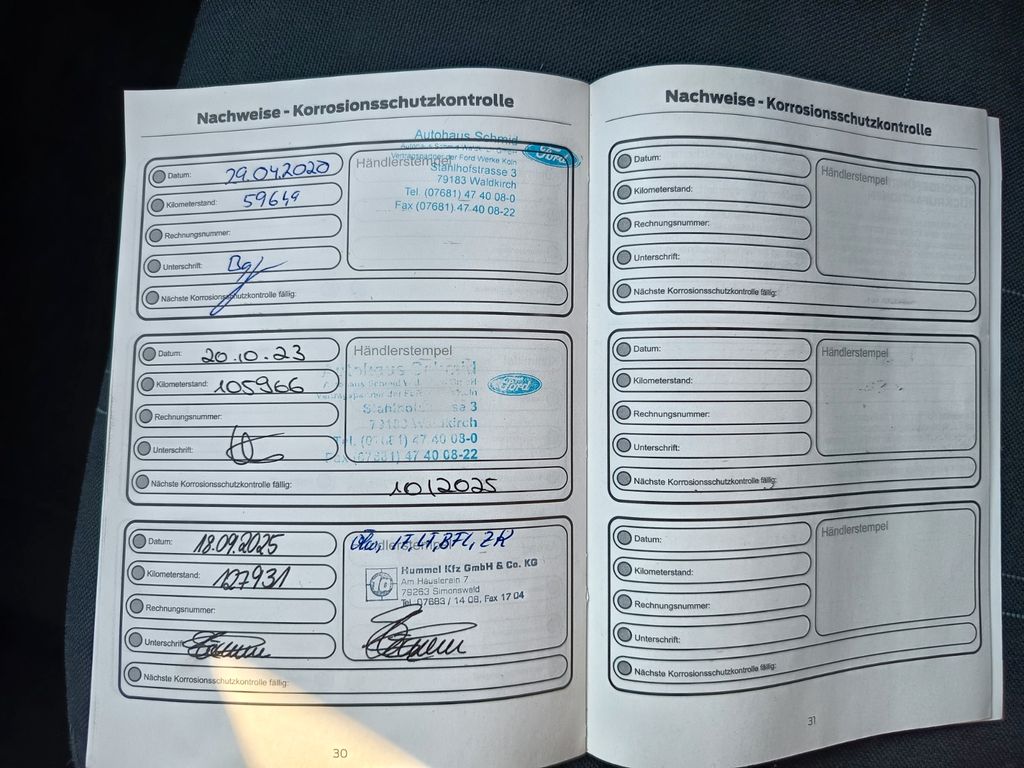 Nachweise - Korrosionsschutzkontrolle
Datum: 29.04.2020
Kilometerstand: 59649
Rechnungsnummer:
Unterschrift:
Händlerstempel
Autohaus Schmid
Vertragspartner der Ford Werke Köln
Stahlhofstrasse 3
79183 Waldkirch
Tel. (07681) 47 40 08-0
Fax (07681) 47 40 08-22
Ford
Nächste Korrosionsschutzkontrolle fällig:
Datum: 20.10.23
Kilometerstand: 105966
Rechnungsnummer:
Unterschrift:
Händlerstempel
Ford
sa 3
79183 Waldkirch
Tel. (07681) 47 40 08-0
Fax (07681) 47 40 08-22
Nächste Korrosionsschutzkontrolle fällig: 10/2025
Datum: 18.09.2025
Kilometerstand: 127931
Rechnungsnummer:
Unterschrift:
Händlerstempel
Hummel Kfz GmbH & Co. KG
Am Häuslerain 7
79263 Simonswald
Tel. 07683 / 14 08, Fax 17 04
Nächste Korrosionsschutzkontrolle fällig:
30
Nachweise - Korrosionsschutzkontrolle
Datum:
Kilometerstand:
Rechnungsnummer:
Unterschrift:
Händlerstempel
Nächste Korrosionsschutzkontrolle fällig:
Datum:
Kilometerstand:
Rechnungsnummer:
Unterschrift:
Händlerstempel
Nächste Korrosionsschutzkontrolle fällig:
Datum:
Kilometerstand:
Rechnungsnummer:
Unterschrift:
Händlerstempel
Nächste Korrosionsschutzkontrolle fällig:
31